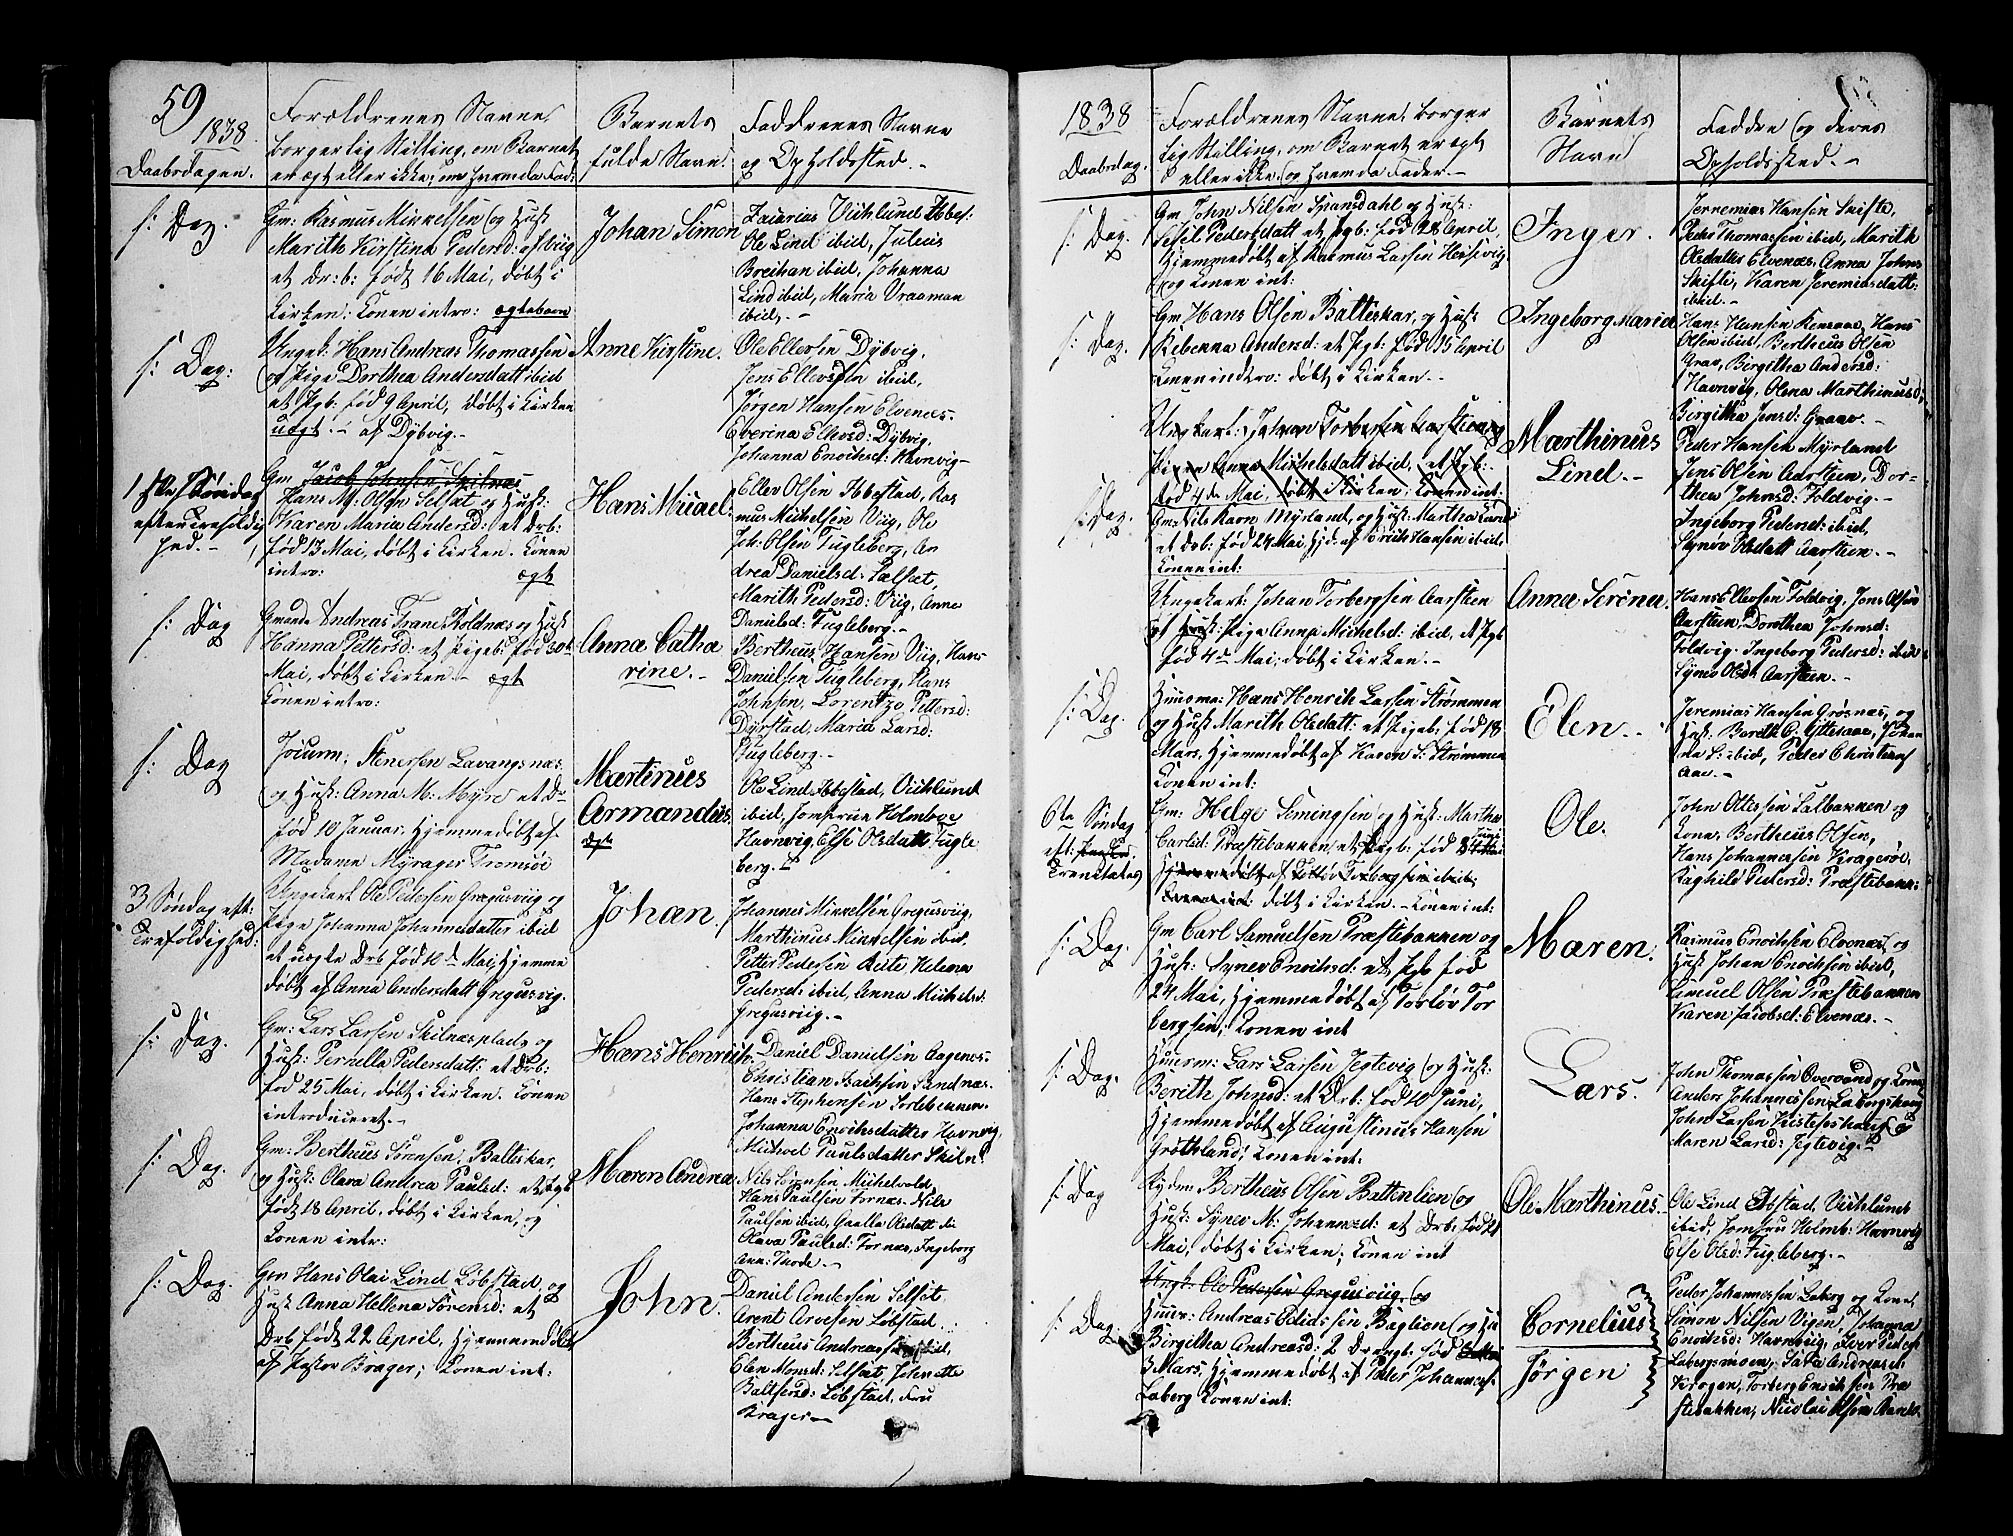 59
1838.
Daabsdagen.
Forældrenes Navne,
borgerlig Stilling, om Barnet
er ægt eller ikke, om
Barnets
fulde Navn.
Faddrenes Navne
og Opholdssted.-
s: Dag.
Gm: Rasmus Mikkelsen og Hust
Marith Kirstina Pedersd: af Viig
et Dr:b: født 16 Mai, døbt i
Kirken; Konen intro: ægtebarn
Johan Simon
Zacarias Vichlund Ibbes:
Ole Lind ibid, Julius
Breihan ibid, Johanna
Lind ibid, Maria Vraaman
ibid,.-
s: Dag:
Ungk: Hans Andreas Thomassen
og Pige Dorthea Andersdatt ibid
et Pgb: fød 9 April, døbt i Kirken
uægt.- af Dybvig.-
Anne Kirstine.
Ole Ellersen Dybvig,
Jens Ellevsen ibid,
Jørgen Hansen Elvenæs.
Everina Ellevsd: Dybvig.
Johanna Enochsd: Havnvig-
1ste Søndag
efter Trefoldig
hed.-
Gm Jacob Johnsen Skilnæs
Hans M: Olsen Selsæt og Hust:
Karen Maria Andersd: et Drb:
fød 13 Mai, døbt i Kirken. Konen
intro: ægt
Hans Micael.
Ellev Olsen Ibbestad, Ras
mus Michelsen Viig, Ole
Joh: Olsen Fugleberg, An
drea Danielsd: Sælsæt,
Marith Pedersd: Viig, Anne
Danielsd: Fugleberg.-
s: Dag
Gmand Andreas Trane Roldnæs og Hust
Hanna Pettersd: et Pigeb: fød 30te
Mai, døbt i Kirken.- ægt
Konen intro:
Anna Catha
rine.-
Bertheus Hansen Viig, Hans
Danielsen Fugleberg, Hans
Johnsen, Lorentzo Pettersd:
Dyrstad, Maria Larsd:
Fugleberg.-
s: Dag
Stenersen Lavangsnæs
og Hust: Anna M: Myre et Dr
fød 10 Januar, Hjemmedøbt af
Madamn Myrager Tromsøe
Martinus
Armandus
ægte
Ole Lind Ibbestad, Vichlund
ibid, Jomfrue Holmboe
Havnvig, Else Olsdatt Fugle
berg.-
3 Søndag eft:
Trefoldighed:
Ungekarl Ole Pedersen Gregusviig og
Pige Johanna Johannesdatter ibid
et uægte Drb fød 10de Mai, Hjemme
døbt af Anna Andersdatt Gregusvig.
Johan.
Johannes Mikkelsen Gregusviig,
Marthinus Mikkelsen ibid,
Petter Pedersen Helena
Pedersd: ibid, Anna Michelsd:
Gregusviig.-
s: Dag.
Gm: Lars Larsen Skilnæsplads og
Hust: Pernella Pedersdatt: et Drb:
fød 25 Mai, døbt i Kirken. Konen
introduceret.-
Hans Henrich
Daniel Danielsen
Christian Isachsen Sandnæs.
Hans Stephensen Sorlebakken.
Johanna Enochsdatter Havnvig,
Michel Paulsdatter Skiln:
s: Dag.
Gm: Bertheus Sørensen, Balteskar,
og Hust: Olava Andrea Paulsd: et Pigb
født 18 April, døbt i Kirken, og
Konen intr:
Maren Andrea
Nils Sørensen Michelvold,
Hans Paulsen Fornæs. Nils
Paulsen ibid, Gaalla Olsdatt
Olava Paulsd: Fornæs, Ingeborg
Ann: Thode.-
s: Dag.
Gm Hans Olai Lind Løbstad, og
Hust Anna Hellena Sørensd: et
Drb født 22 April, Hjemmedøbt
af Pastor Brager; Konen int:
John.
Daniel Andersen Selset,
Arent Arvesen Løbstad,
Bertheus Andreassen ibid,
Elen Monsd: Selset, Johnette
Baltsersd: Løbstad, Fru
Brager.-
1838
Daabsdag.
Forældrenes Navne, borger
lig Stilling, om Barnet er ægt
eller ikke, og fremda Feder.-
Barnets
Navn
Faddre og deres
Opholdssted.-
s: Dag.
Gm John Nilsen Spansdahl og Hust:
Sesel Pedersdatt et Pgb: fød 28 April,
Hjemmedøbt af Rasmus Larsen
og Konen int:
Inger.
Jerremias Hansen Skifte,
Peder Thomassen ibid, Marith
Olsdatter Elvenæs, Anna Johns
Skifte, Karen Jeremiasdatt:
ibid.-
s: Dag.
Gm Hans Olsen Balteskar, og Hust
Rebenna Andersd: et Pgb: fød 15 April
Konen intro: døbt i Kirken.-
Ingeborg Maria
Hans Hansen Hans
Olsen ibid, Bertheus Olsen
Grav, Birgitha Andersd:
Havnvig, Olena Marthinusd:
Birgitha Jensd: Graav.-
Ungkarl: Johan Torbersen Aarsteen og
Pigen Anna Michelsdatt ibid, et Pgb:
fød 4de Mai, døbt i Kirken; Konen int:
s: Dag.
Gm: Nils Ravn Myrland, og Hust: Martha Lind
et Drb: fød 24 Mai, Hjd. af Erich Hansen ibid
Konen int:
Marthinus
Lind.-
Peder Hansen Myrland
Jens Olsen Aarsteen, Dor-
thea Johnsd: Foldvig.-
Ingeborg Pedersd: ibid,
Synøv Olsdatt Aarsteen.-
Ungekarl: Johan Torbergsen Aarsteen
og Hust: Pige Anna Michelsd: ibid, et Pgb
fød 4de Mai, døbt i Kirken.-
Anna Serina.
Hans Ellevsen Foldvig, Jens Olsen
Aarsteen, Dorothea Johnsd:
Foldvig. Ingeborg Pedersd: ibid
Synev Olsdt. Aarsteen.-
s: Dag.
Huusma: Hans Henrik Larsen Strømmen
og Hust Marith Olsdatt: et Pigeb: fød 18
Mars, Hjemmedøbt af Karen S: Strømmen
Konen int:
Elen.-
Jeremias Hansen Grøsnæs, og
Hust: Berith C: Johan
na S: ibid, Peder Christians
Aae.-
6te Søndag
eft:
Trenitates
Gm: Helge Simingsen og Hust: Marthe
Carlsd: Præstebakken et Pgb: fød 3 Juni
Hjemmedøbt af Tollev Torbergsen ibid,
Konen int: døbt i Kirken.- Konen int:
Ole.
John Ottesen Salbakken og
Kone, Bertheus Olsen,
Hans Johannessen Kragerøe,
Raghild Pedersd: Præstebakk:
s: Dag.
Gm Carl Samuelsen Præstebakken og
Hust: Synev Enochsd: et Pgb fød
24 Mai, Hjemmedøbt af Torlev Tor
bergsen; Konen int
Maren.
Rasmus Enochsen Elvenæs, og
Hust Johan Enochsen ibid,
Samuel Olsen Præstebakken
Karen Jacobsd: Elvenæs.-
s: Dag.
Huusm: Lars Larsen Jegtevig og Hust:
Berith Johnsd: et Drb: fød 10 Juni,
Hjemmedøbt af Augustinus Hansen
Grøthland; Konen int:
Lars.
John Thomassen Øvervand og Kone
Anders Johannessen Labergskoug
John Larsen og
Maren Larsd: Jegtevig.-
s: Dag
Ryden Bertheus Olsen Battenlien og
Hust: Synev M: Johannesd: et Drb: fød 21
Mai, døbt i Kirken; Konen int
Ole Marthinus.
Ole Lind Ibbstad, Vichlund
ibid, Jomfru Holmb: Havnvig
Else Olsd: Fugleberg.-
Ungk: Ole Pedersen Greguiviig, og
s: Dag.
Huusm: Andreas Odidssen Baglien og Hu
Birgitha Andreasd: 2 Drengb. fød
3 Mars, Hjemmedøbt af Peder Johanness:
Laberg Konen int:
Cornelius
Jørgen
Peder Johannessen Laberg og Kone,
Simon Nilsen Vigen, Johanna
Enochsd: Havnvig, Iver Peders
Labergsmoen, Sara Andreasd:
Krogen, Torberg Enochsen Præ
stebakken, Nicolai Olsen